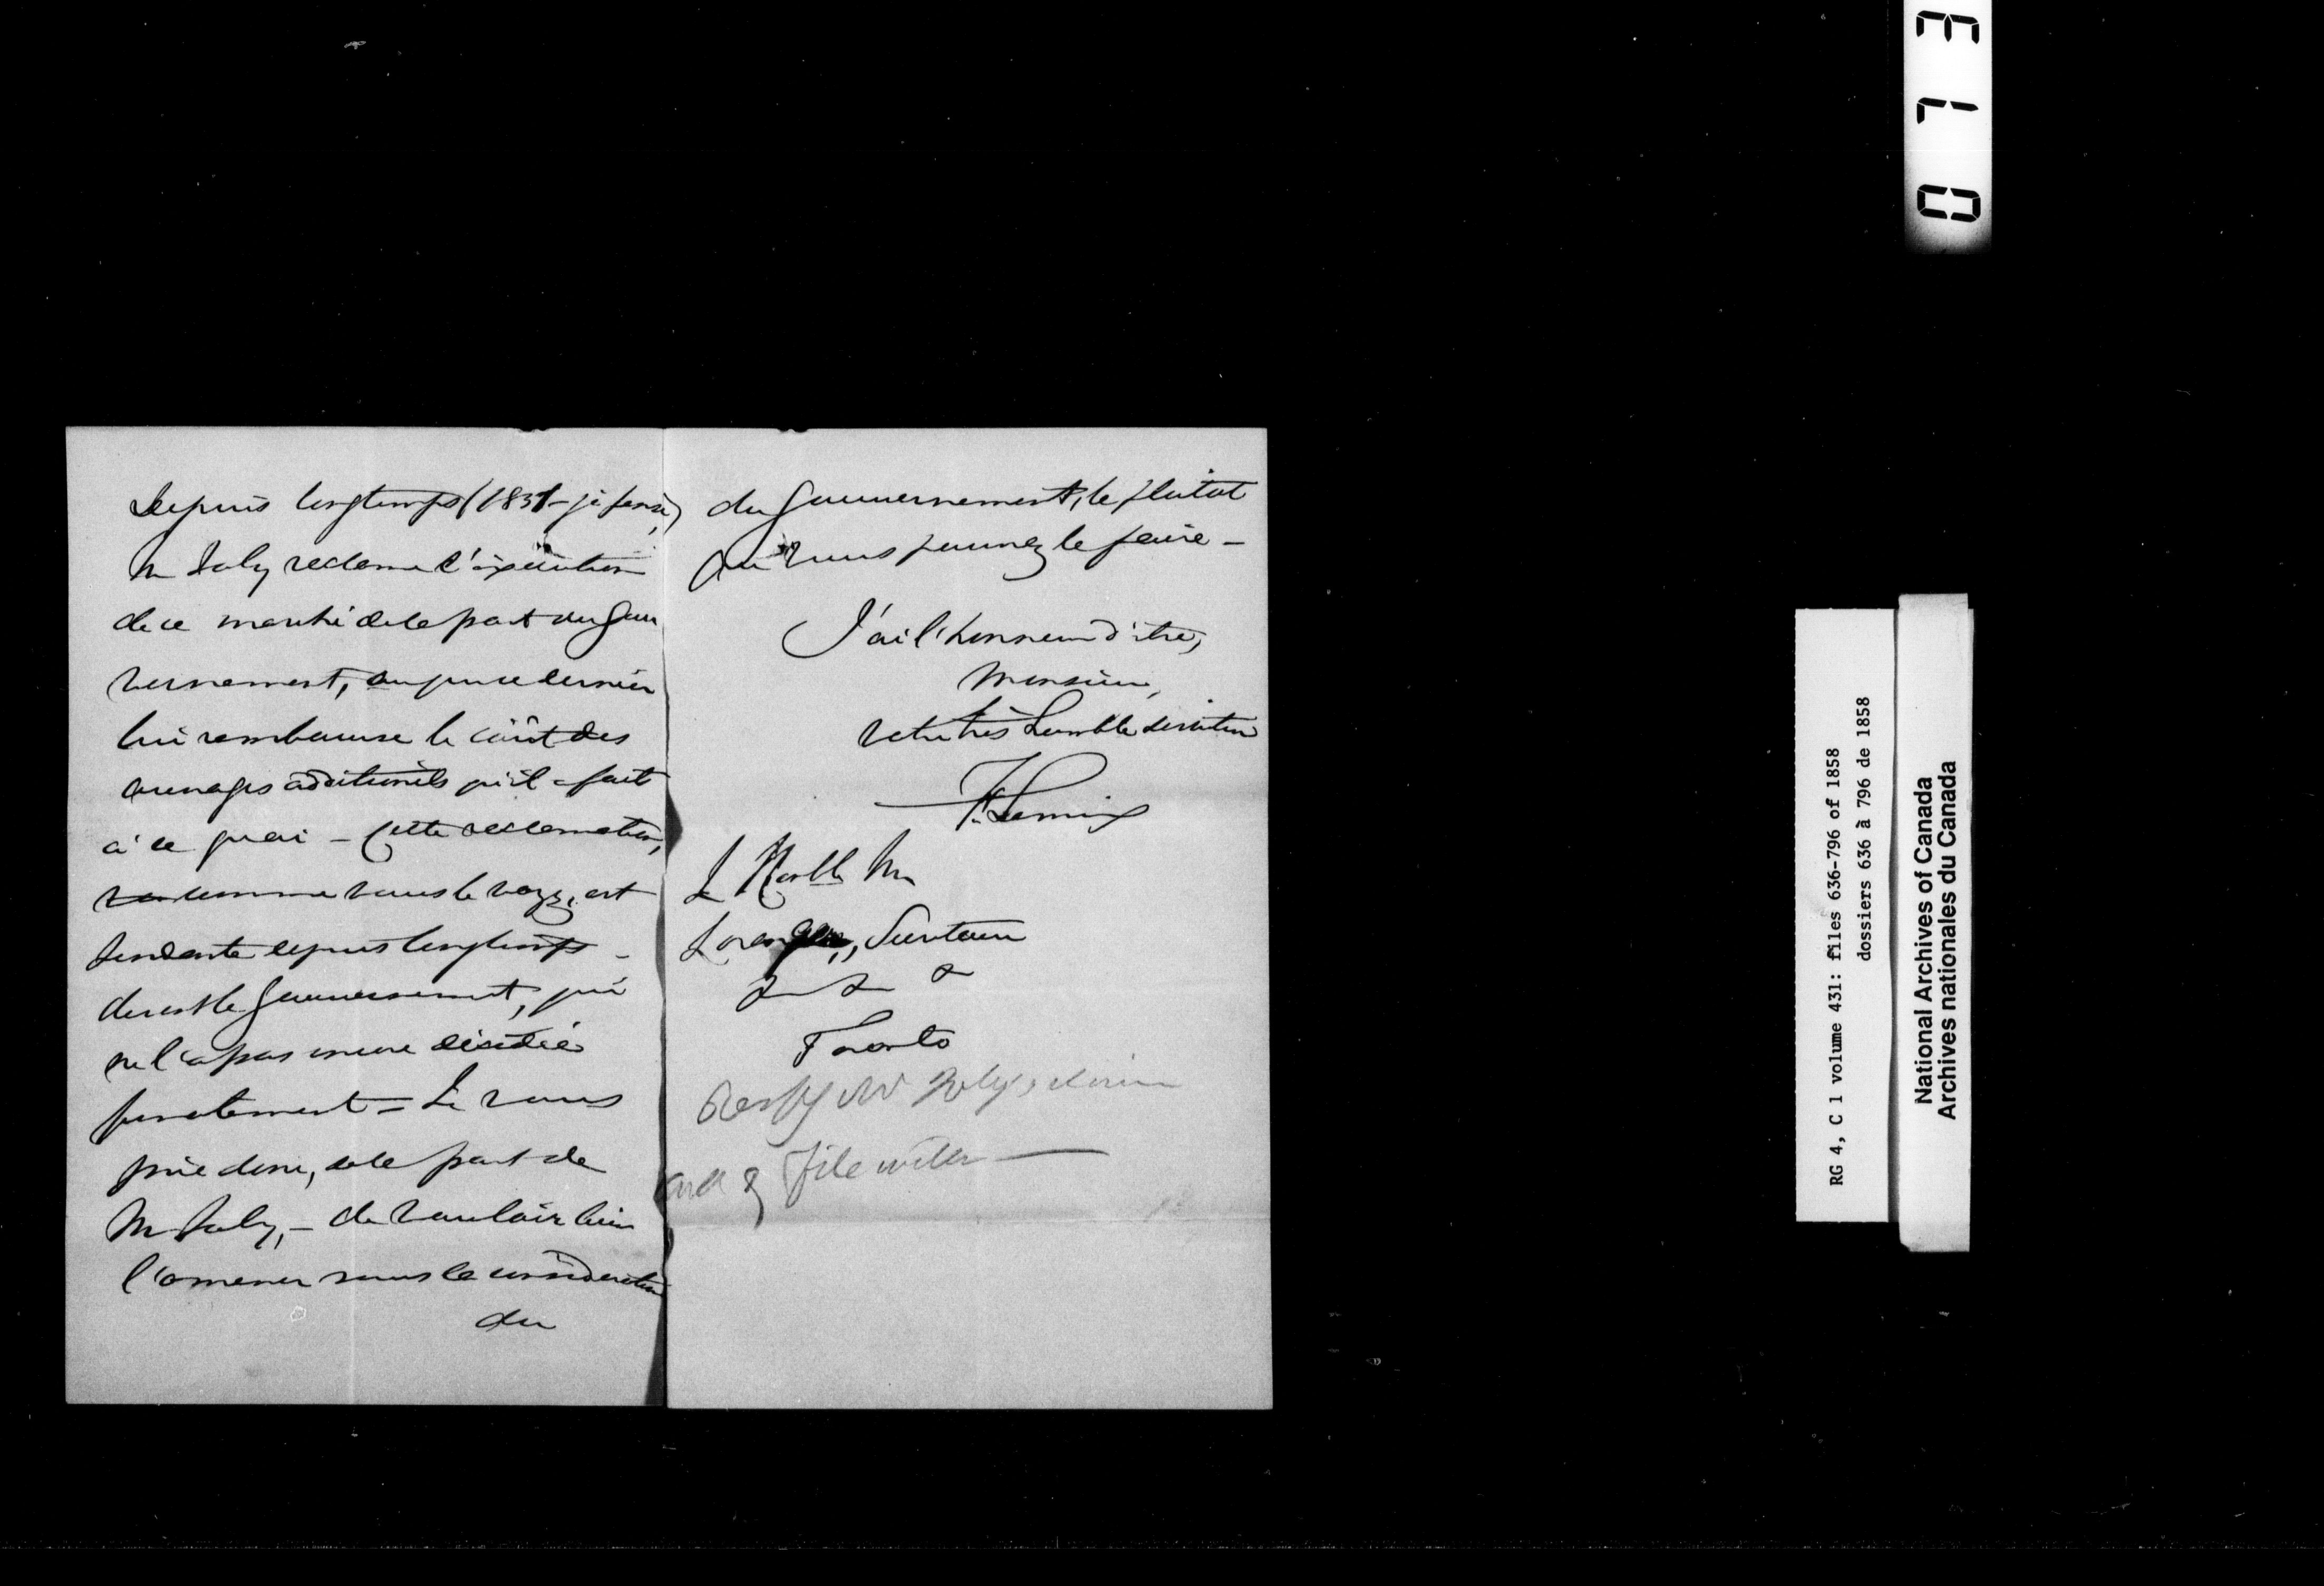 Depuis longtemps (1851 - je pense)
Mr Joly reclame l'exécution
de ce marché de la part du Gou
vernement, ou que ce dernier
lui rembourse le coût des
ouvrages additionels qu'il a fait
à ce quai - Cette reclamation,
comme vous le voyez, est
pendante depuis longtemps -
devant le Gouvernement, qui
ne l'a pas encore décidée
finalement - Je vous
prie donc, de la part de
Mr Joly, - de vouloir bien
l'amener sous la considération
du
du Gouvernement, le plutot
que vous pourrez le faire -
J'ai l'honneur d'être,
Monsieur,
Votre très humble serviteur
Lemieux
L'Honble Mr
Loranger, Secretaire
&c &c &c
Toronto
Mr Joly's claim
and file with
0 7 3
RG 4, C 1 volume 431: files 636-796 of 1858
dossiers 636 à 796 de 1858
National Archives of Canada
Archives nationales du Canada